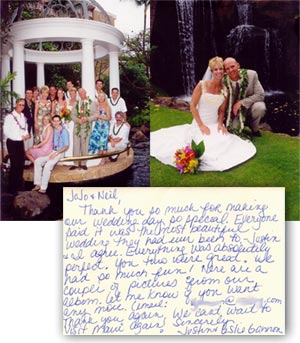 JoJo & Neil,
Thank you so much for making
our wedding day so special. Everyone
said it was the most beautiful
wedding they had ever been to. Justin
and I agree. Everything was absolutely
perfect. You two were great. We
had so much fun! Here are a
couple of pictures from our
album. Let me know if you want
any more. (email: @ .com
Thank you again. We can't wait to
visit Maui again! Sincerely,
Justin & Leslie Gannon